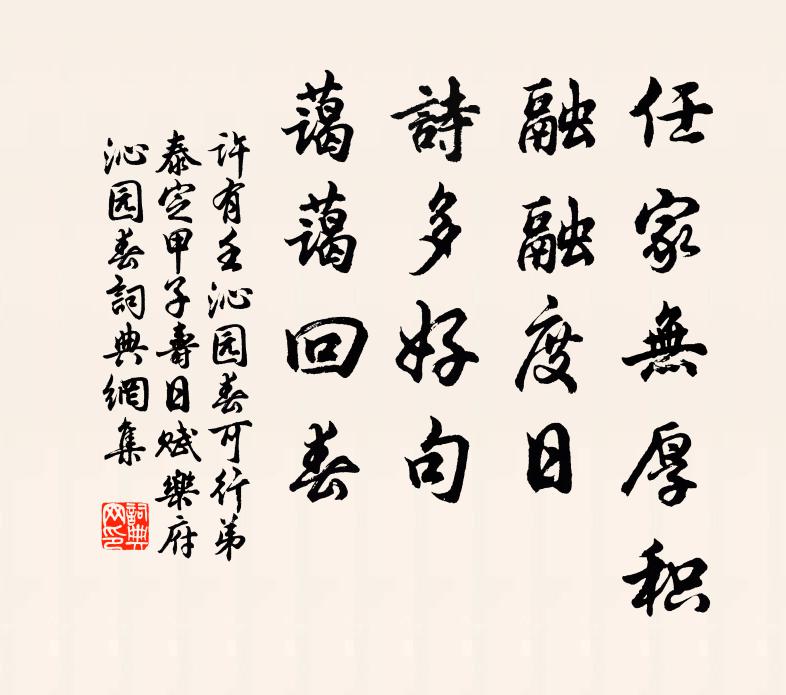 任家無厚积
融融度日
詩多好句
藹藹回春
许有壬沁园春可行弟
泰定甲子壽日赋樂府
沁园春詞典網集
詞典网印